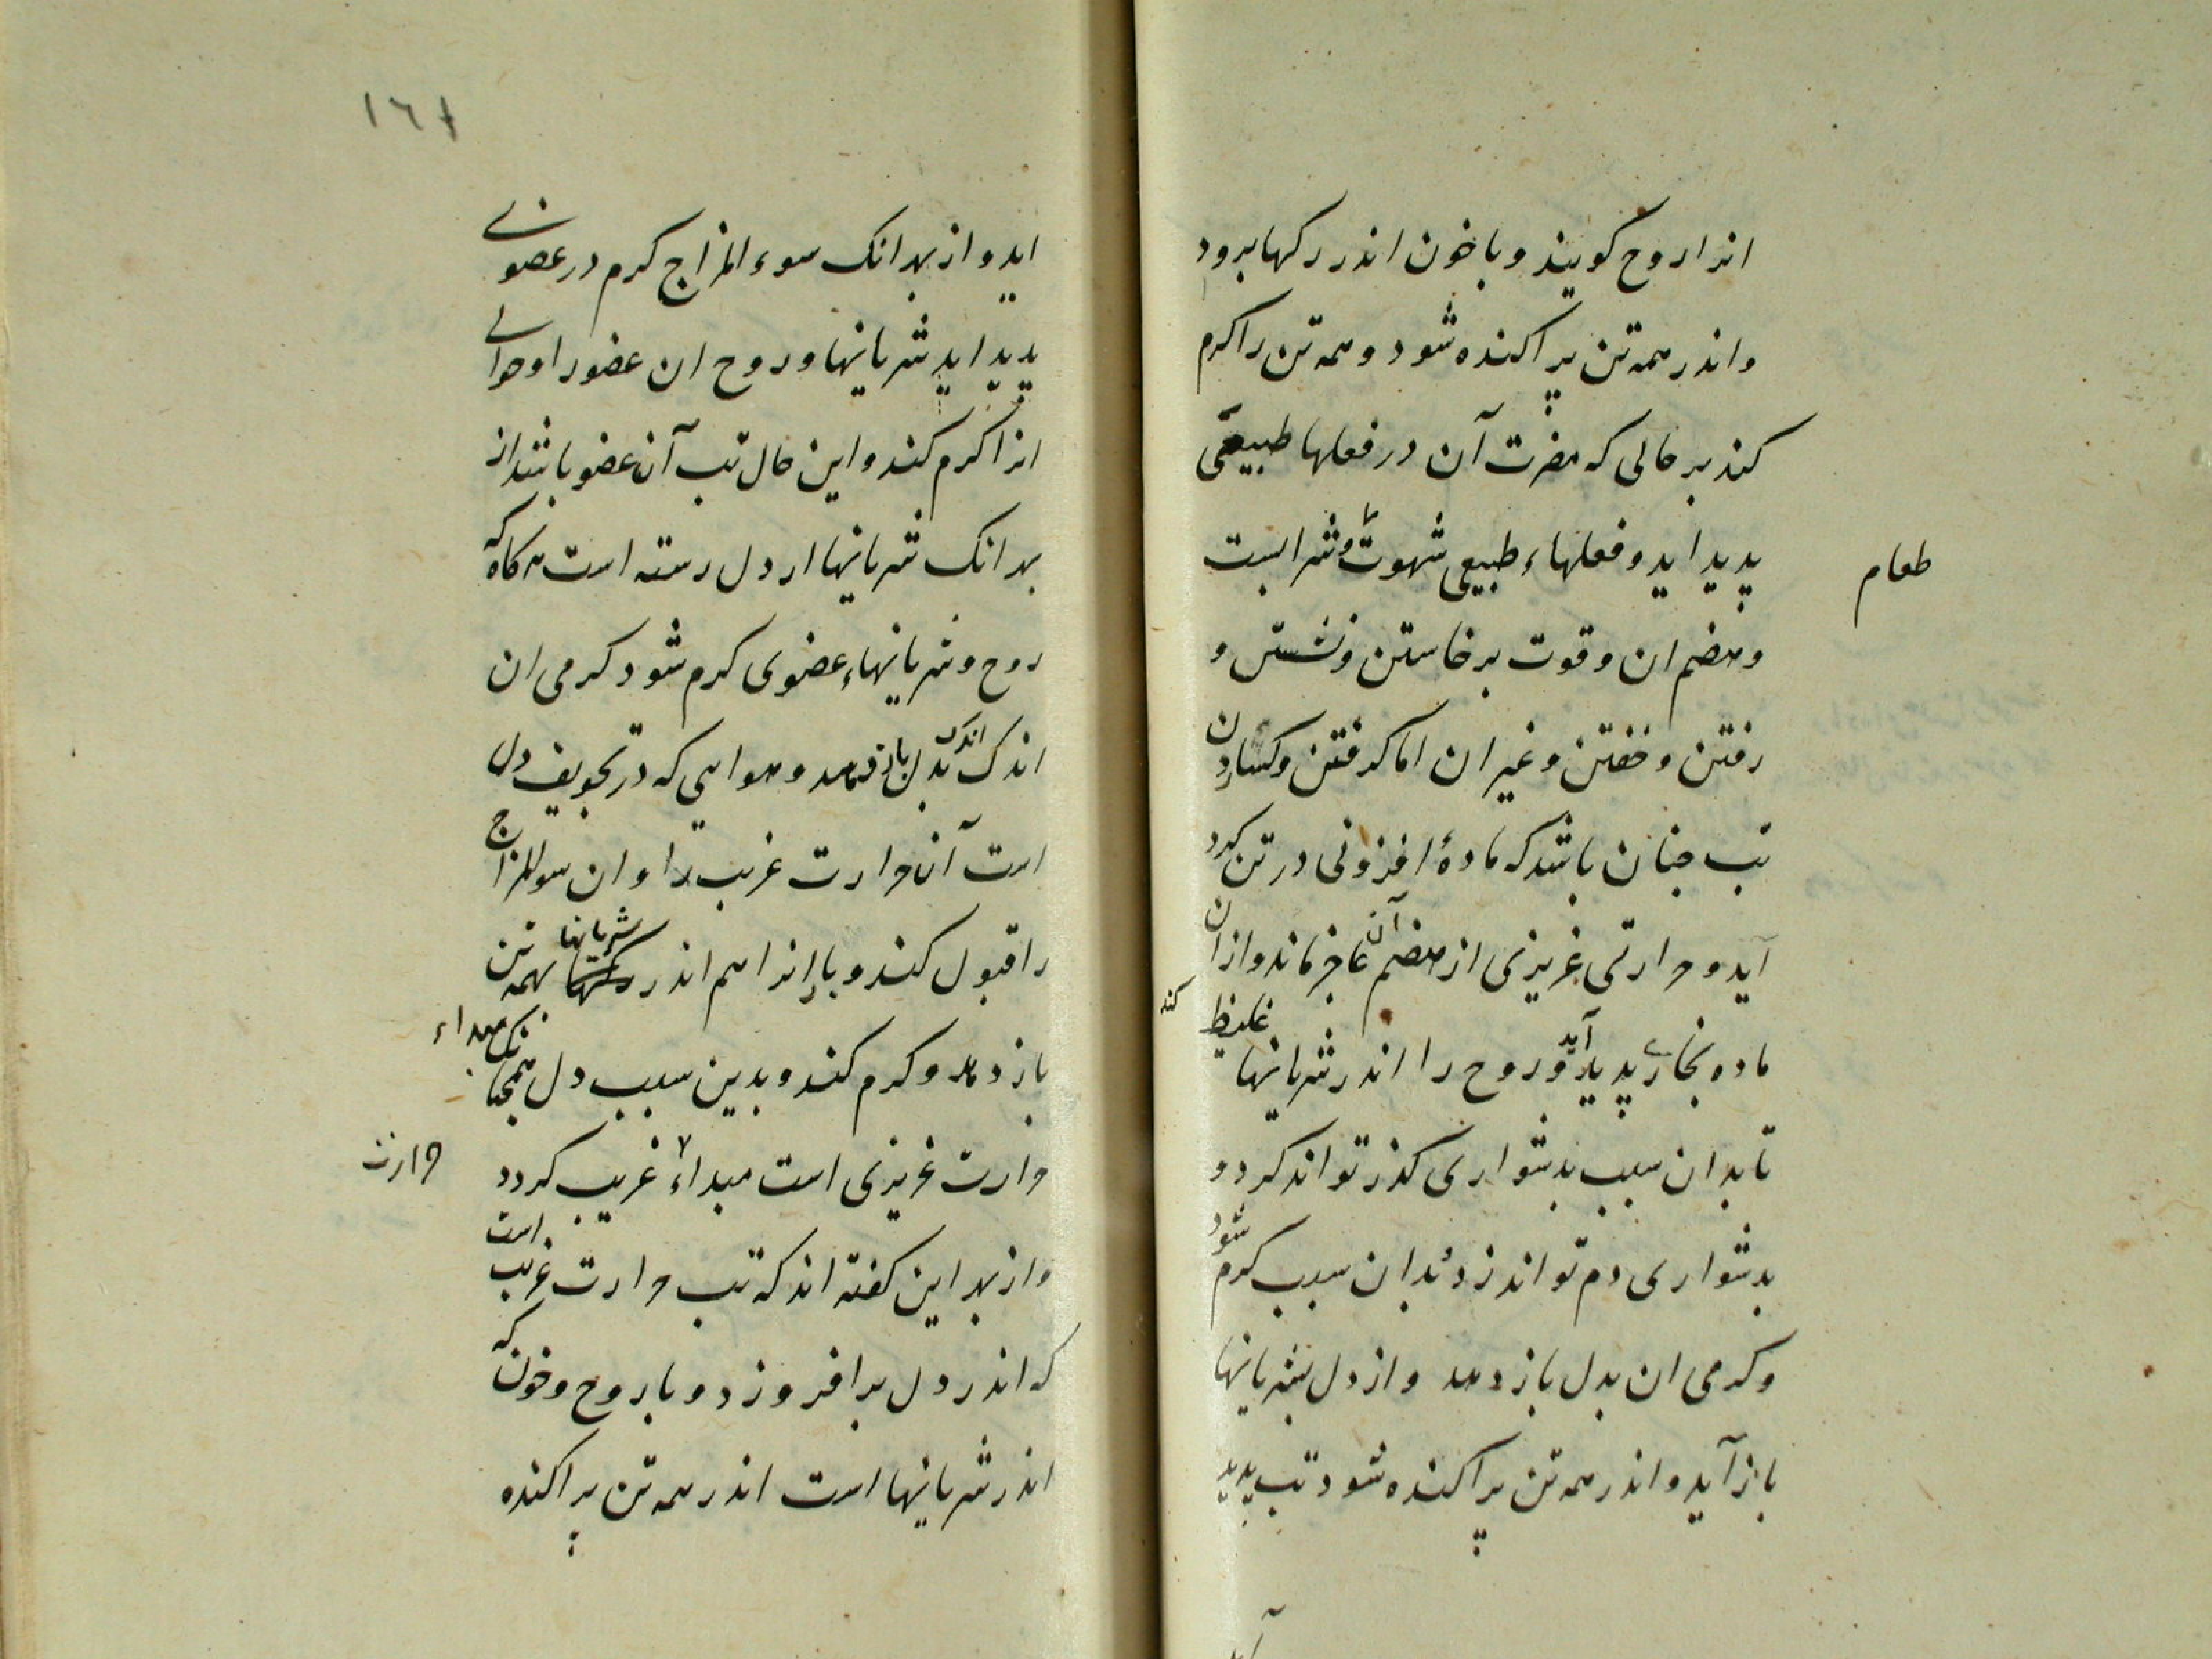 انرا روح کویند و با خون اندر رکها برود
و اندر همه تن پراکنده شود و همه تن را کرم
کند بر حالی که مضرت آن در فعلها طبیعی
پدید اید و فعلهاء طبیعی شهوت و شرابست
طعام
و هضم ان و قوت برخاستن و نشستن و
رفتن و خفتن و غیر ان اما کرفتن و کساردن
تب جنان باشد که مادهٔ افزونی در تن کرد
آید و حرارتی غریزی از هضم آن عاجز ماند و از ان
ماده بخاری پدید آید و روح را اندر شریانها غلیظ کند
تا بدان سبب بدشواری کذر تواند کرد و
بدشواری دم تواند زد بدان سبب کرم شود
و کرمی ان بدل باز دهد و از دل بشریانها
باز آید و اندر همه تن پراکنده شود تب پدید
آید
١٦١
اید و از بهر انک سوء المزاج کرم در عضوی
پدید اید شریانها و روح ان عضو را و حوالی
انرا کرم کند و این حال تب آن عضو باشد از
بهر انک شریانها از دل رسته است هرکاه که
روح و شریانهاء عضوی کرم شود کرمی ان
اندک اندک بدل باز دهد و هوایی که در تجویف دل
است آن حرارت غریب را و ان سوالمزاج
را قبول کند و باز انرا هم اندر شریانها بهمه تن
باز دهد و کرم کند و بدین سبب دل همجنانک مبداء
حرارت غریزی است مبداء غریب کردد
حرارت
و از بهر این کفته اند که تب حرارت غریب است
که اندر دل برافروزد و با روح و خون که
اندر شریانها است اندر همه تن پراکنده